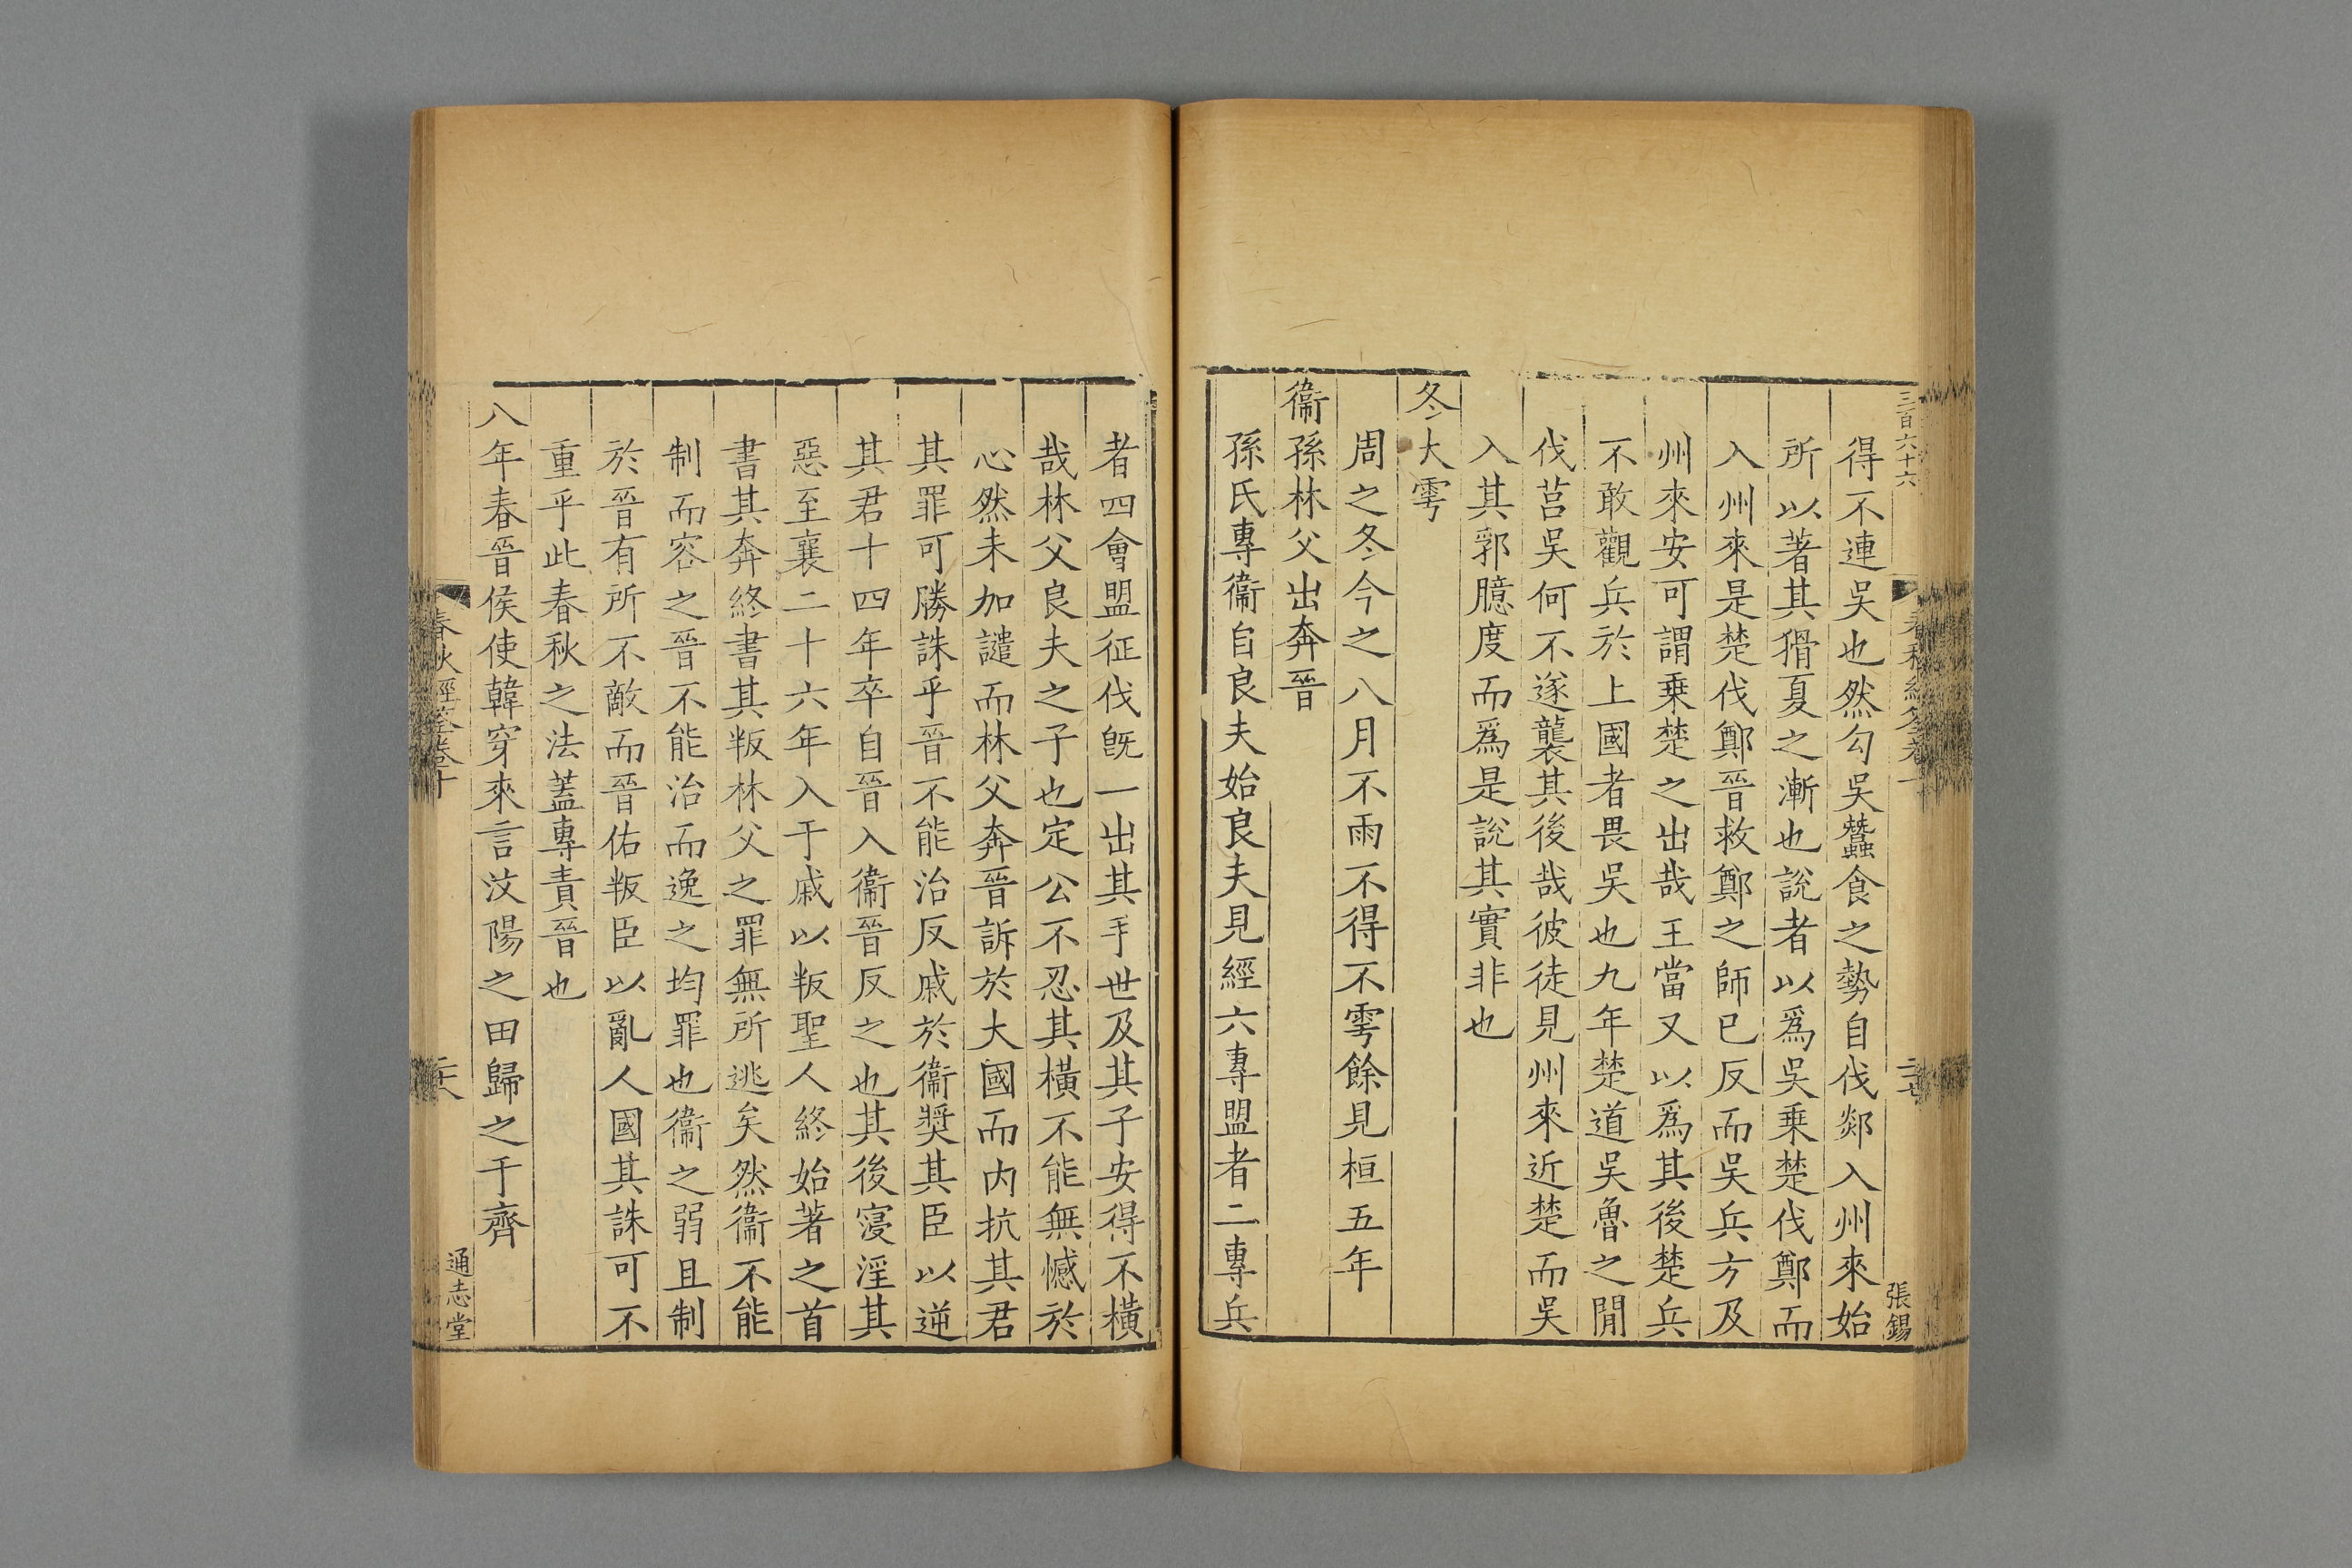 三百六十六
得不連吳也然勾吳蠶食之勢自伐郯入州來始
所以著其猾夏之漸也說者以爲吳乗楚伐鄭而
入州來是楚伐鄭晉救鄭之師已反而吳兵方及
州來安可謂乗楚之出哉王當又以爲其後楚兵
不敢觀兵於上國者畏吳也九年楚道吳魯之閒
伐莒吳何不遂襲其後哉彼徒見州來近楚而吳
入其郛臆度而爲是說其實非也
冬大雩
周之冬今之八月不雨不得不雩餘見桓五年
衞孫林父出奔晉
孫氏專衞自良夫始良夫見經六專盟者二專兵
張錫
者四會盟征伐旣一出其手世及其子安得不橫
哉林父良夫之子也定公不忍其橫不能無憾於
心然未加譴而林父奔晉訴於大國而内抗其君
其罪可勝誅乎晉不能治反戚於衞奬其臣以逆
其君十四年卒自晉入衞晉反之也其後寖淫其
惡至襄二十六年入于戚以叛聖人終始著之首
書其奔終書其叛林父之罪無所逃矣然衞不能
制而容之晉不能治而逸之均罪也衞之弱且制
於晉有所不敵而晉佑叛臣以亂人國其誅可不
重乎此春秋之法蓋專責晉也
八年春晉侯使韓穿來言汶陽之田歸之于齊
春秋經筌卷十
通志堂